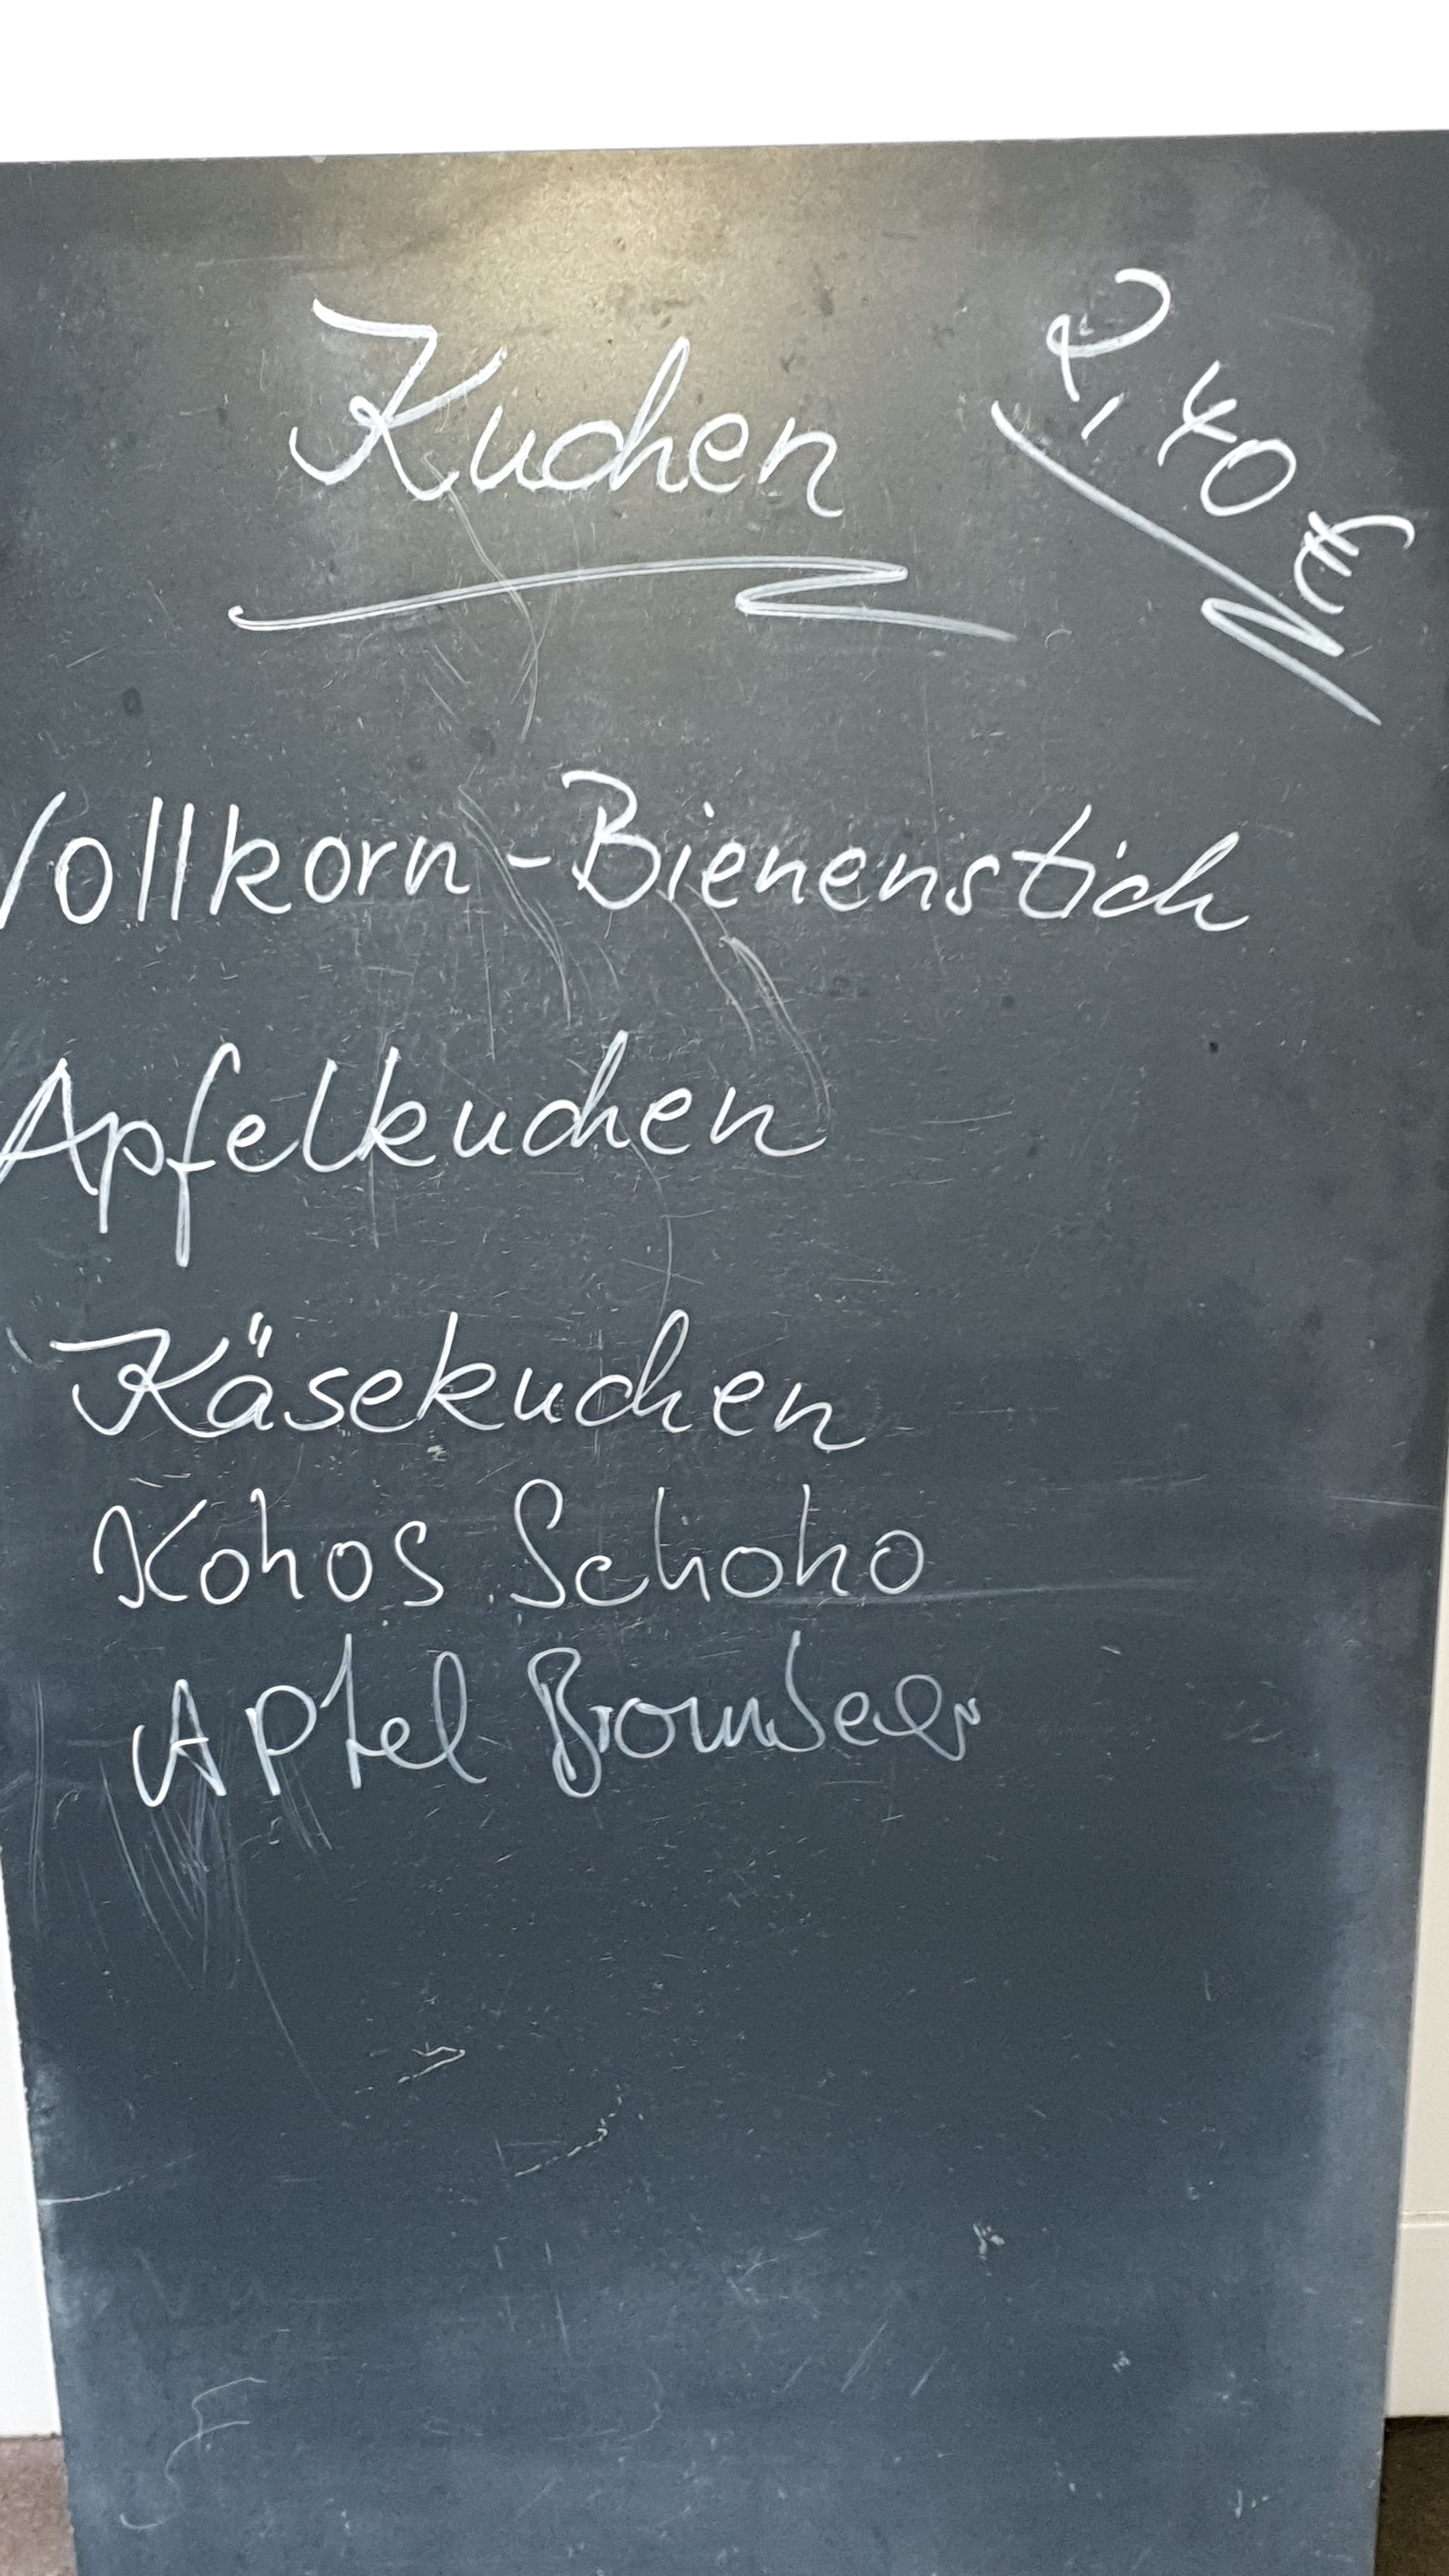 Kuchen
2,40 €
Vollkorn-Bienenstich
Apfelkuchen
Käsekuchen
Kokos Schoko
Apfel Brombeer